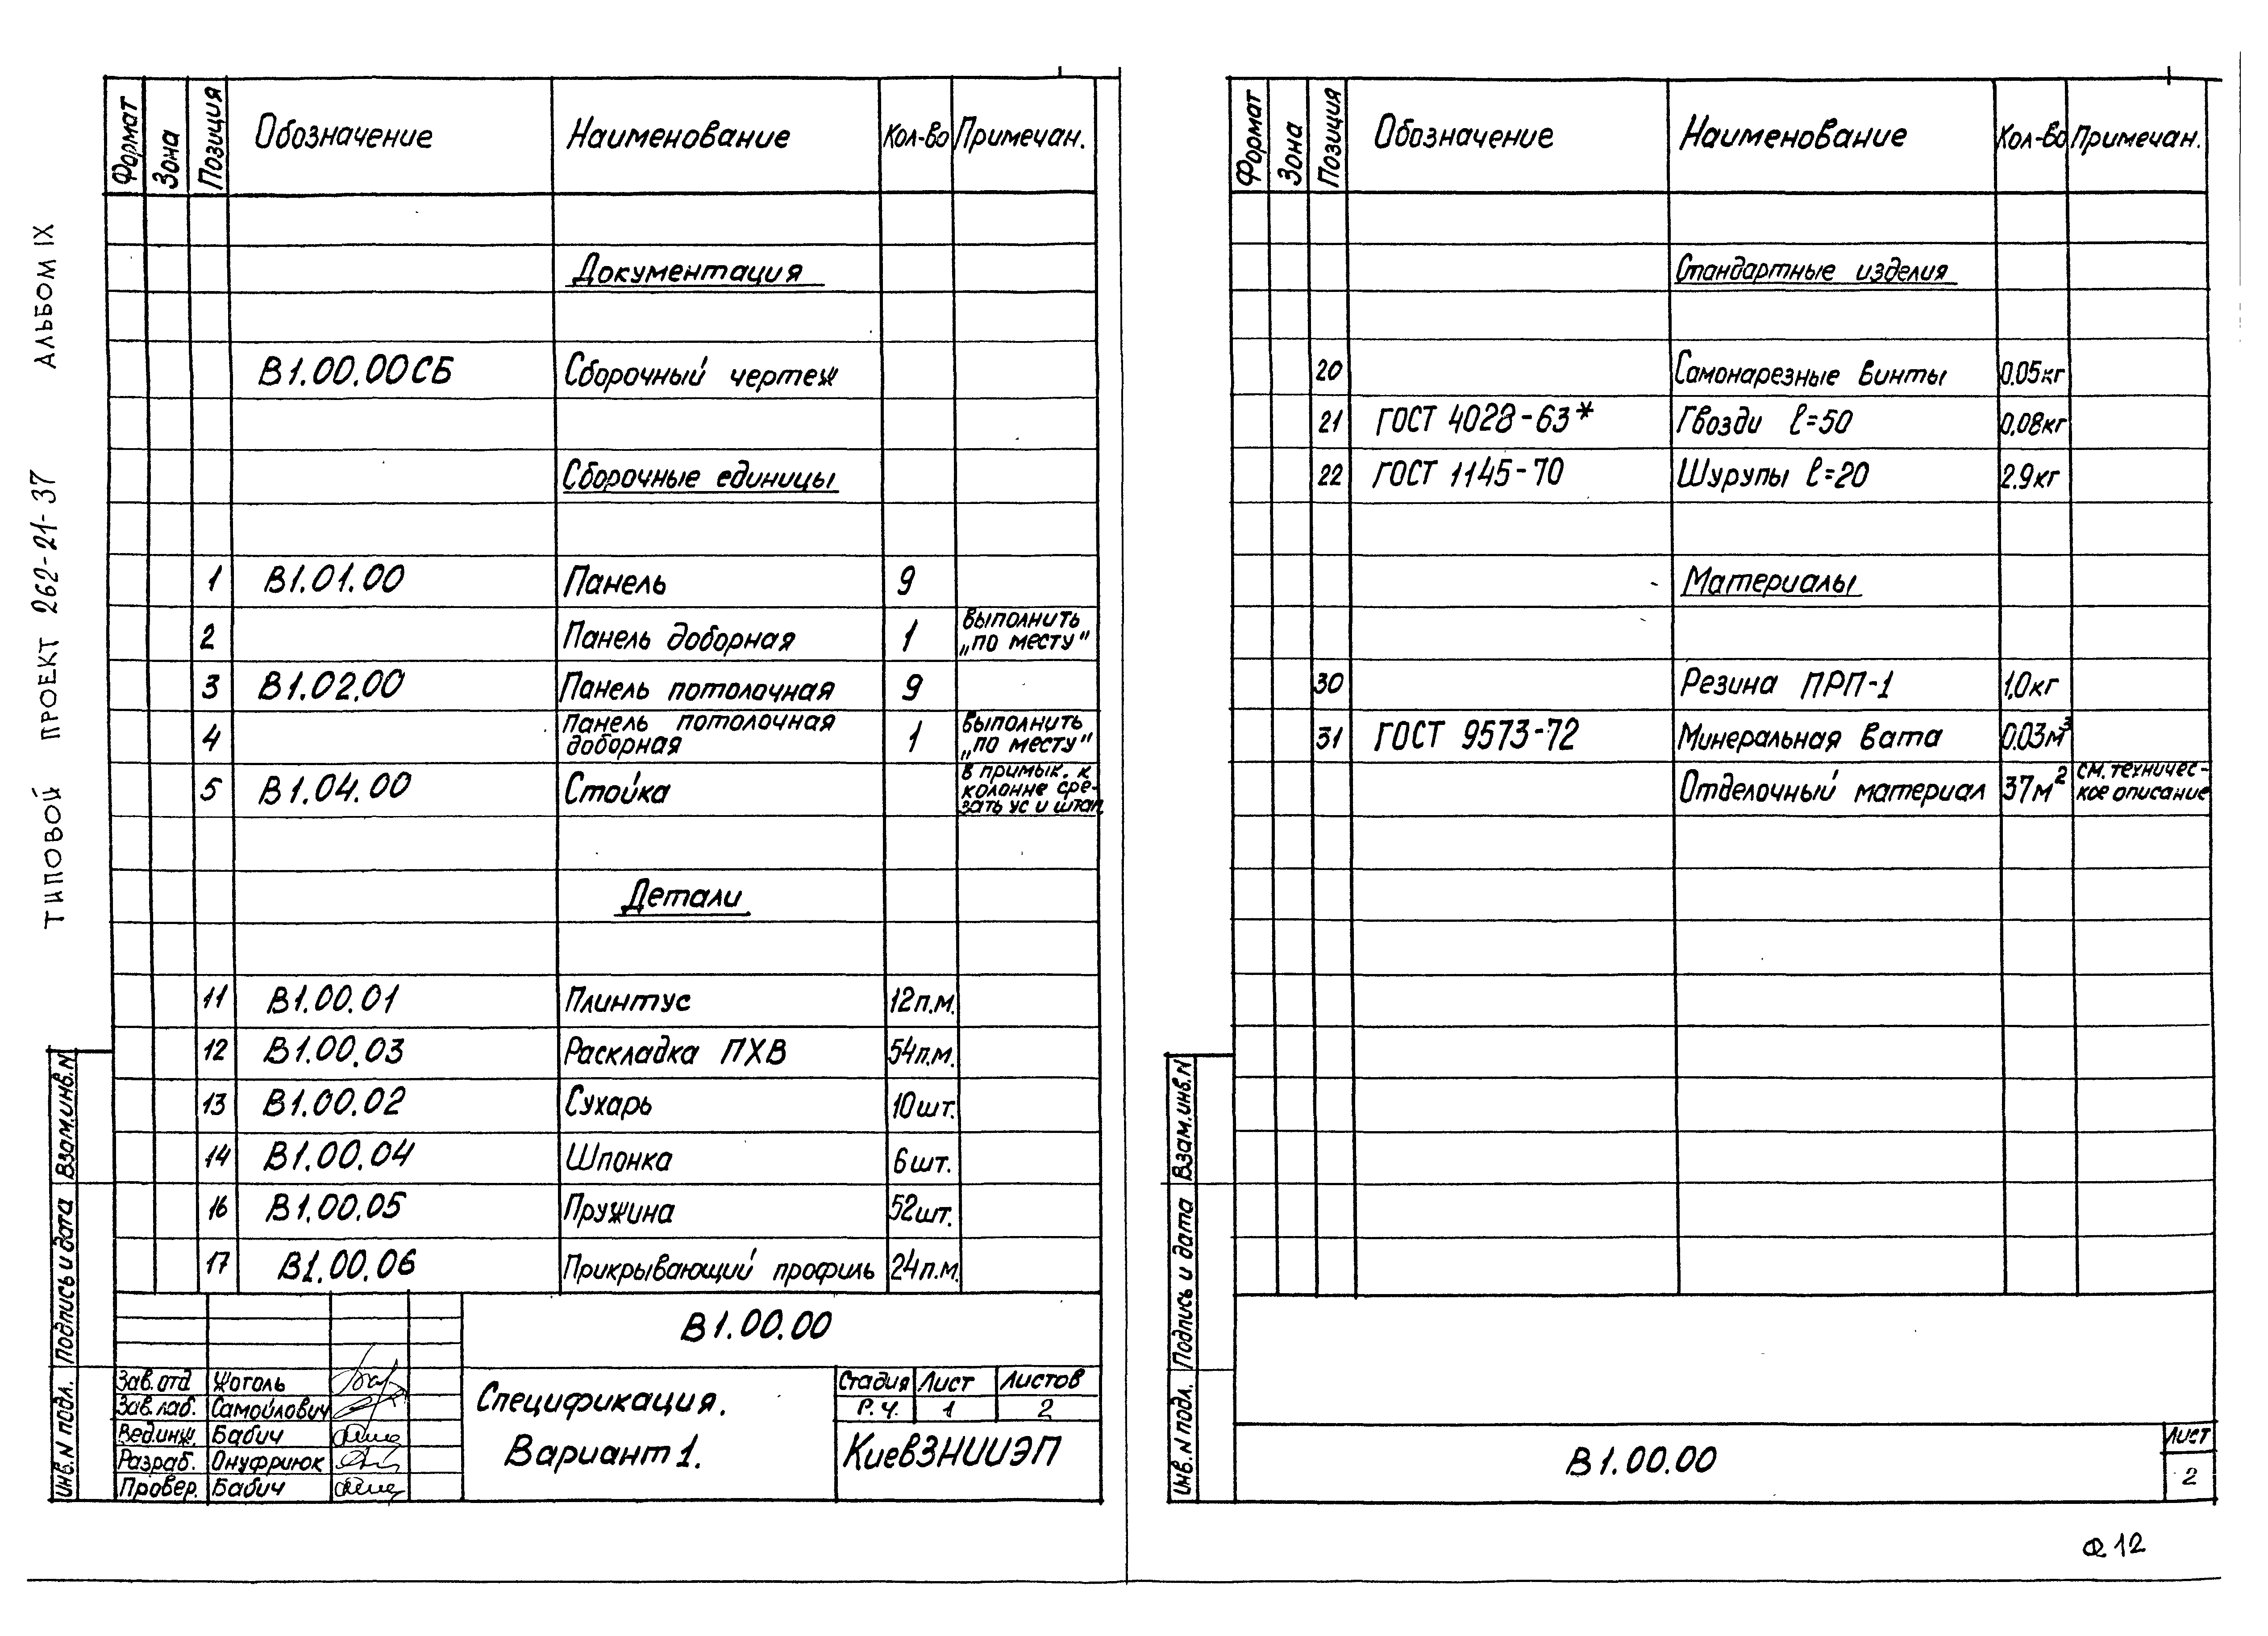 ТИПОВОЙ ПРОЕКТ 262-21-37 АЛЬБОМ IX
Формат Зона Позиция Обозначение Наименование Кол-во Примечан.
Документация
В1.00.00СБ Сборочный чертеж
Сборочные единицы
1 В1.01.00 Панель 9
2 Панель доборная 1 выполнить „по месту"
3 В1.02.00 Панель потолочная 9
4 Панель потолочная доборная 1 выполнить „по месту"
5 В1.04.00 Стойка в примык. к колонне срезать ус и штап.
Детали
11 В1.00.01 Плинтус 12п.м.
12 В1.00.03 Раскладка ПХВ 54п.м.
13 В1.00.02 Сухарь 10шт.
14 В1.00.04 Шпонка 6шт.
16 В1.00.05 Пружина 52шт.
17 В1.00.06 Прикрывающий профиль 24п.м.
В1.00.00
Зав.отд Жоголь
Зав.лаб. Самойлович
Вед.инж. Бабич
Разраб. Онуфриюк
Провер. Бабич
Спецификация.
Вариант 1.
Стадия Лист Листов
Р.Ч. 1 2
КиевЗНИИЭП
Инв.N подл. Подпись и дата Взам.инв.N
Формат Зона Позиция Обозначение Наименование Кол-во Примечан.
Стандартные изделия
20 Самонарезные винты 0.05кг
21 ГОСТ 4028-63* Гвозди ℓ=50 0.08кг
22 ГОСТ 1145-70 Шурупы ℓ=20 2.9кг
Материалы
30 Резина ПРП-1 1.0кг
31 ГОСТ 9573-72 Минеральная вата 0.03м³
Отделочный материал 37м² см. техничес-кое описание
Инв.N подл. Подпись и дата Взам.инв.N
В1.00.00
Лист
2
12